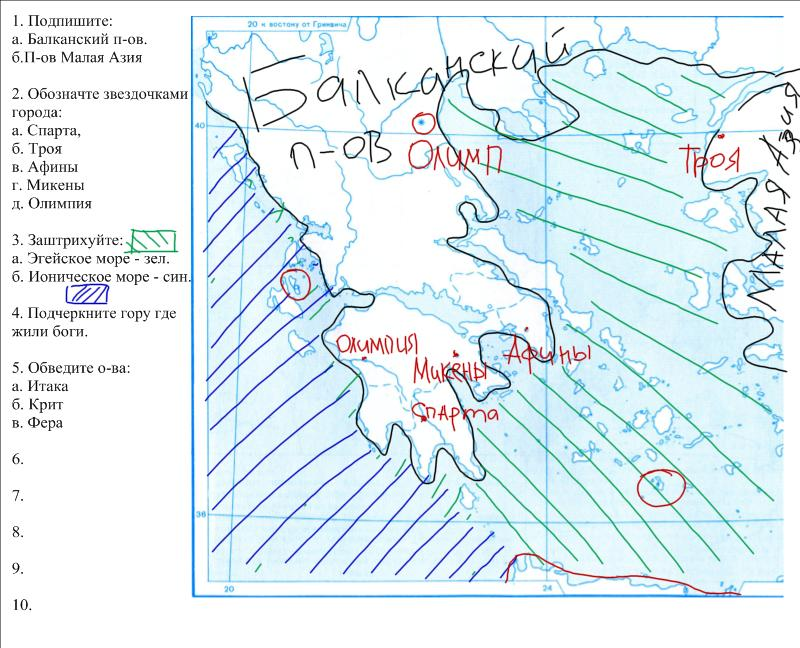 1. Подпишите:
а. Балканский п-ов.
б.П-ов Малая Азия
2. Обозначте звездочками
города:
а. Спарта,
б. Троя
в. Афины
г. Микены
д. Олимпия
3. Заштрихуйте:
а. Эгейское море - зел.
б. Ионическое море - син.
4. Подчеркните гору где
жили боги.
5. Обведите о-ва:
а. Итака
б. Крит
в. Фера
6.
7.
8.
9.
10.
20 к востоку от Гринвича
Балканский
п-ов
40
Олимп
Троя
Малая Азия
Олимпия
Микены
Афины
Спарта
36
20
24